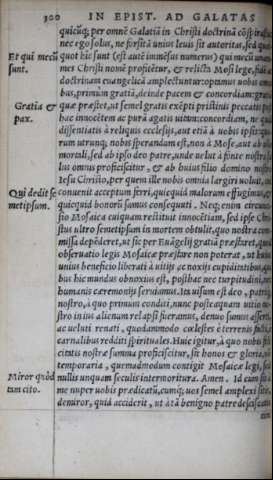 300 IN EPIST. AD GALATAS
quicũq; per omnẽ Galatiã in Christi doctrinã cõspirastis,
nec ego solus, ne forsitã unius leuis sit autoritas, sed quot
Et qui mecũ sunt.
quot hic sunt (est autẽ immẽsus numerus) qui mecũ unanimes
Christi nomẽ profitẽtur, & relicta Mosi lege, fidei ac
doctrinam euangelicã amplectuntur: optamus uobis omnibus,
Gratia & pax.
primùm gratiã, deinde pacem & concordiam: gratiã
quæ præstet, ut semel gratis exẽpti pristinis peccatis
hac innocẽtem ac purã agatis uitam: concordiam, ne quid
dissentiatis à reliquis ecclesijs, aut etiã à uobis ipsis: quorum
utrunq; nobis sperandum est, non à Mose, aut ab alio
mortali, sed ab ipso deo patre, unde uelut à fonte nostra salus
omnis proficiscitur, & ab huius filio domino nostro
Iesu Christo, per quem ille nobis omnia largiri uoluit,
Qui dedit semetipsum.
conuenit acceptum ferri, quicquid malorum effugimus,
quicquid bonorũ sumus consequuti. Neq; enim circumcisio
Mosaica cuiquam restituit innocẽtiam, sed ipse Christus
ultro semetipsum in mortem obtulit, quo nostra commissa
depẽderet, ut sic per Euãgelij gratiã præstaret, quod
obseruatio legis Mosaicæ præstare non poterat, ut huius
unius beneficio liberati à uitijs ac noxijs cupiditatibus,
bus hic mundus obnoxius est, posthac nec turpitudini, nec
humanis cæremonijs seruiamus. Ita uisum est deo, patri
nostro, à quo primum conditi, nunc posteaquam uitio nostro
in ius alienum relapsi fueramus, denuo sumus asserti,
ac ueluti renati, quodammodo cœlestes è terrenis facti,
carnalibus redditi spirituales. Huic igitur, à quo nobis felicitatis
nostræ summa proficiscitur, sit honos & gloria,
temporaria, quemadmodum contigit Mosaicæ legi, sed
nullis unquam seculis intermoritura. Amen.
Miror quòd tam cito.
Id cum sit à
me nuper uobis prædicatũ, cumq; uos semel amplexi sitis,
demiror, quid acciderit, ut à tã benigno patre desciscatis